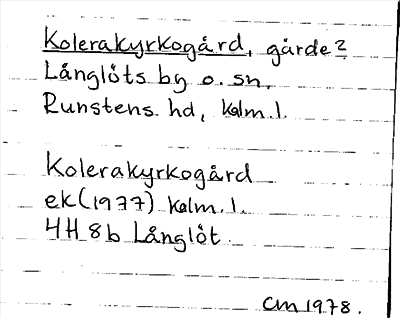 Kolerakyrkogård, gärde?
Långlöts by o. sn,
Runstens hd, Kalm.l.
Kolerakyrkogård
ek(1977) Kalm.l.
4H 8b Långlöt
CM 1978.